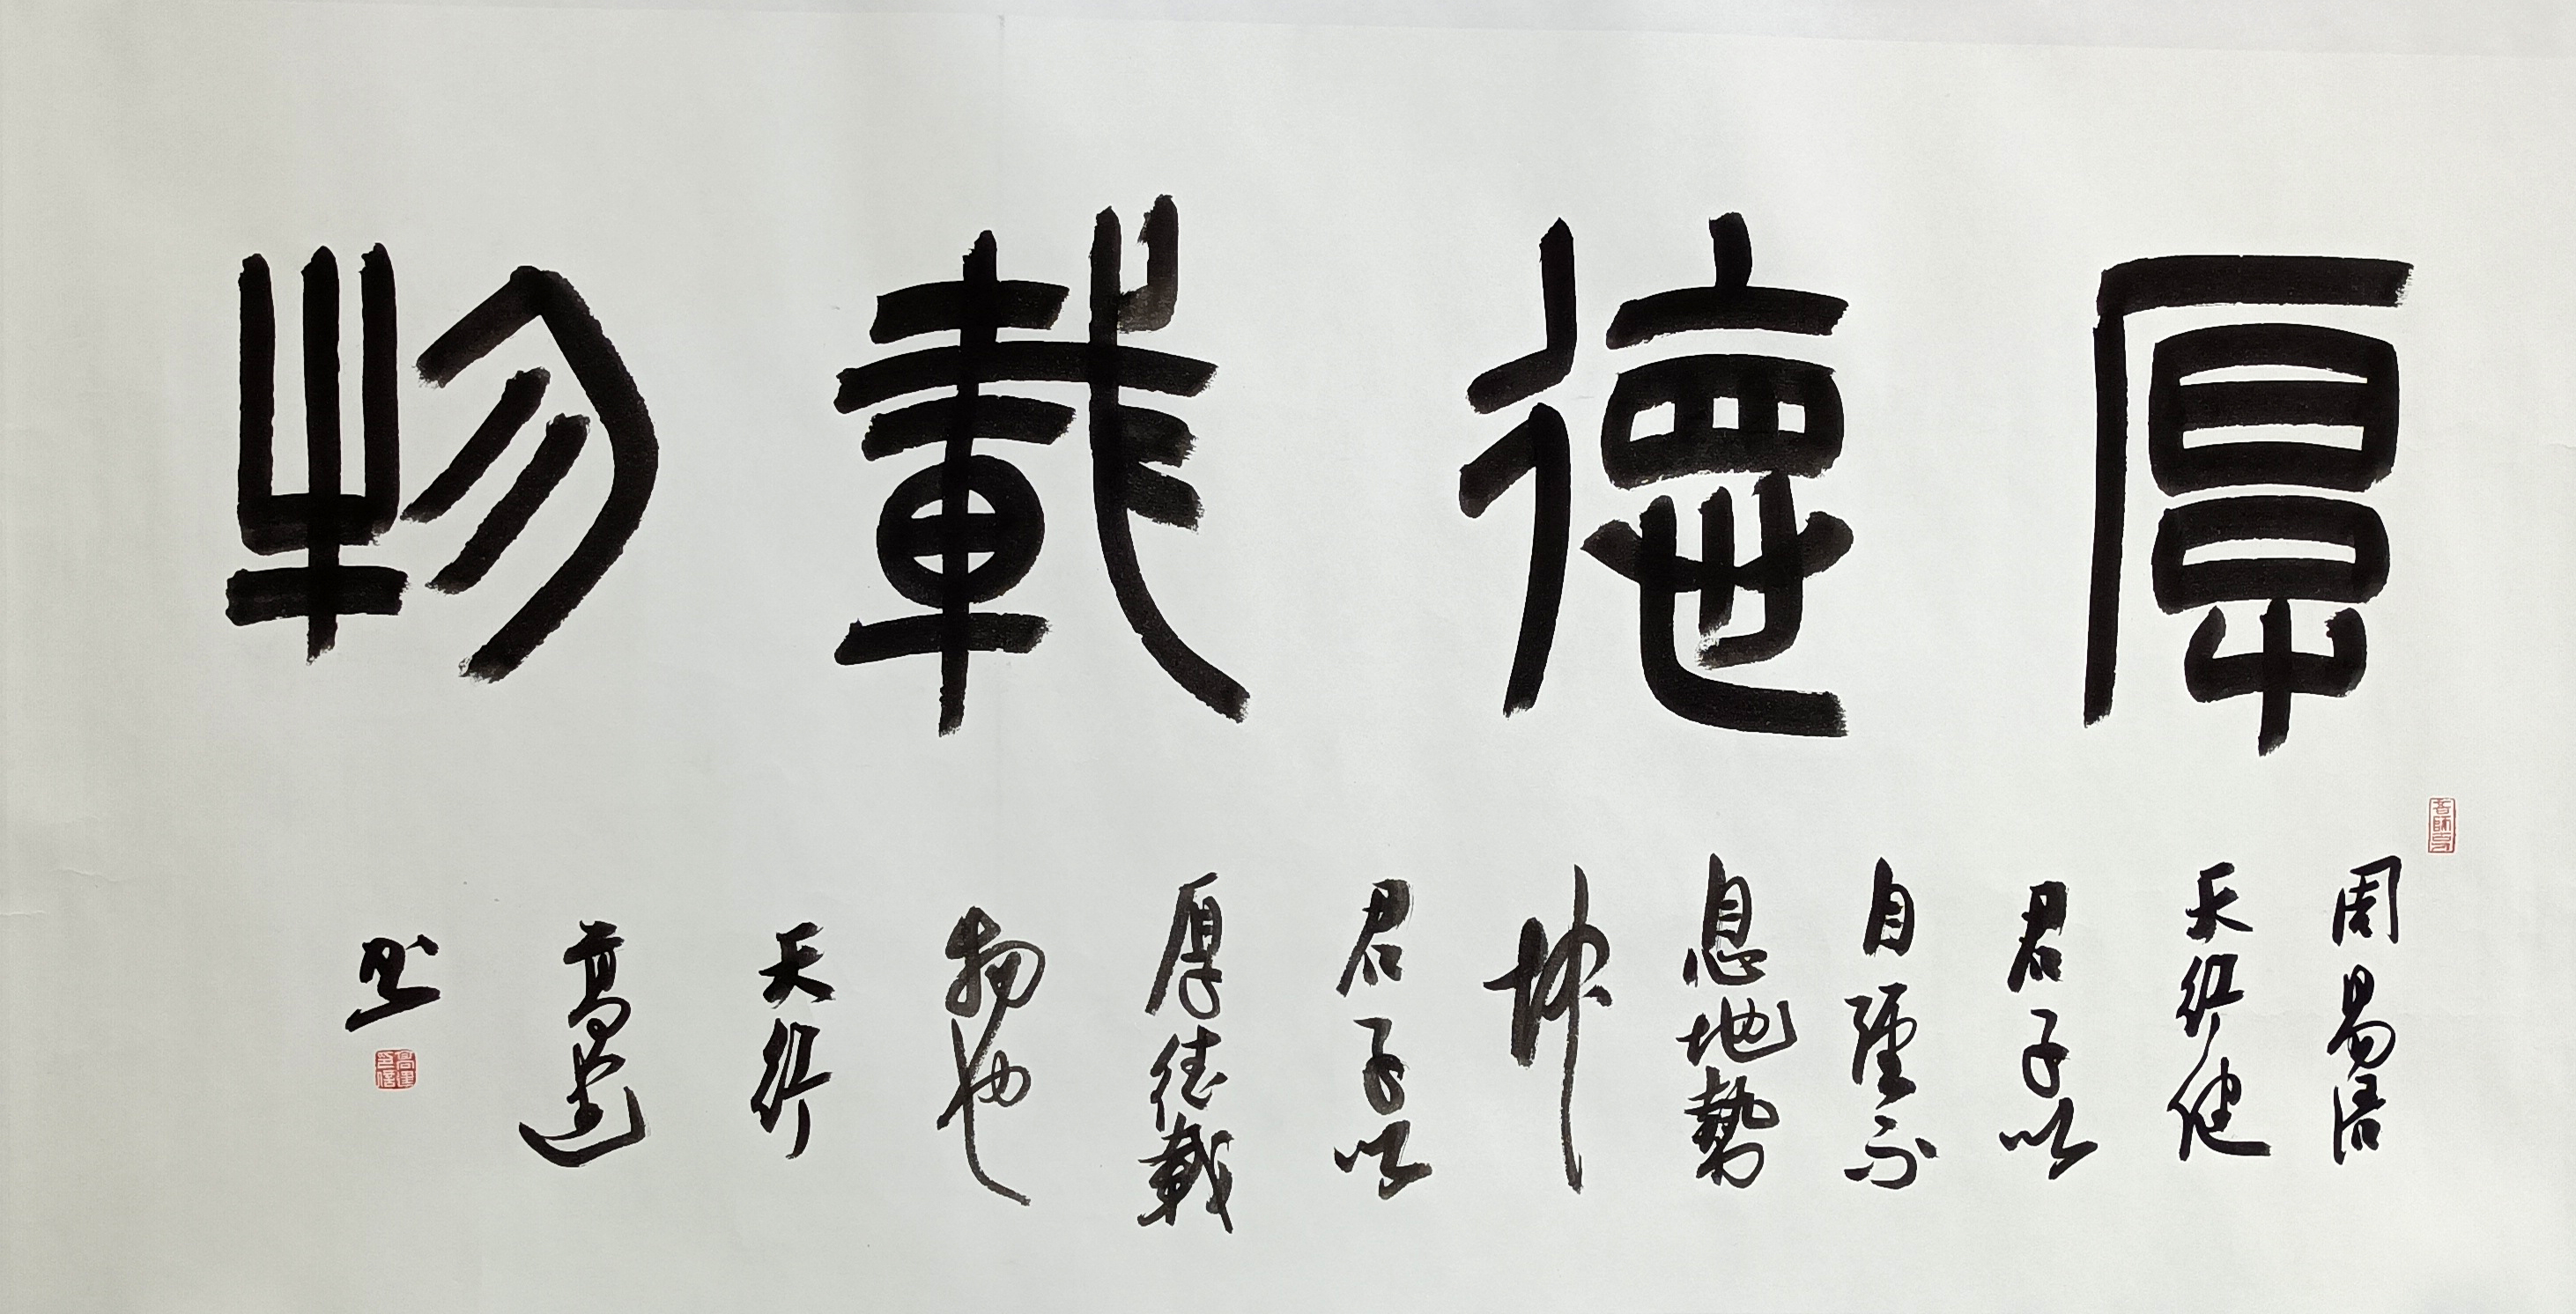 厚德載物
周易語
天行健
君子以
自強不
息地勢
坤
君子以
厚德載
物也
天行